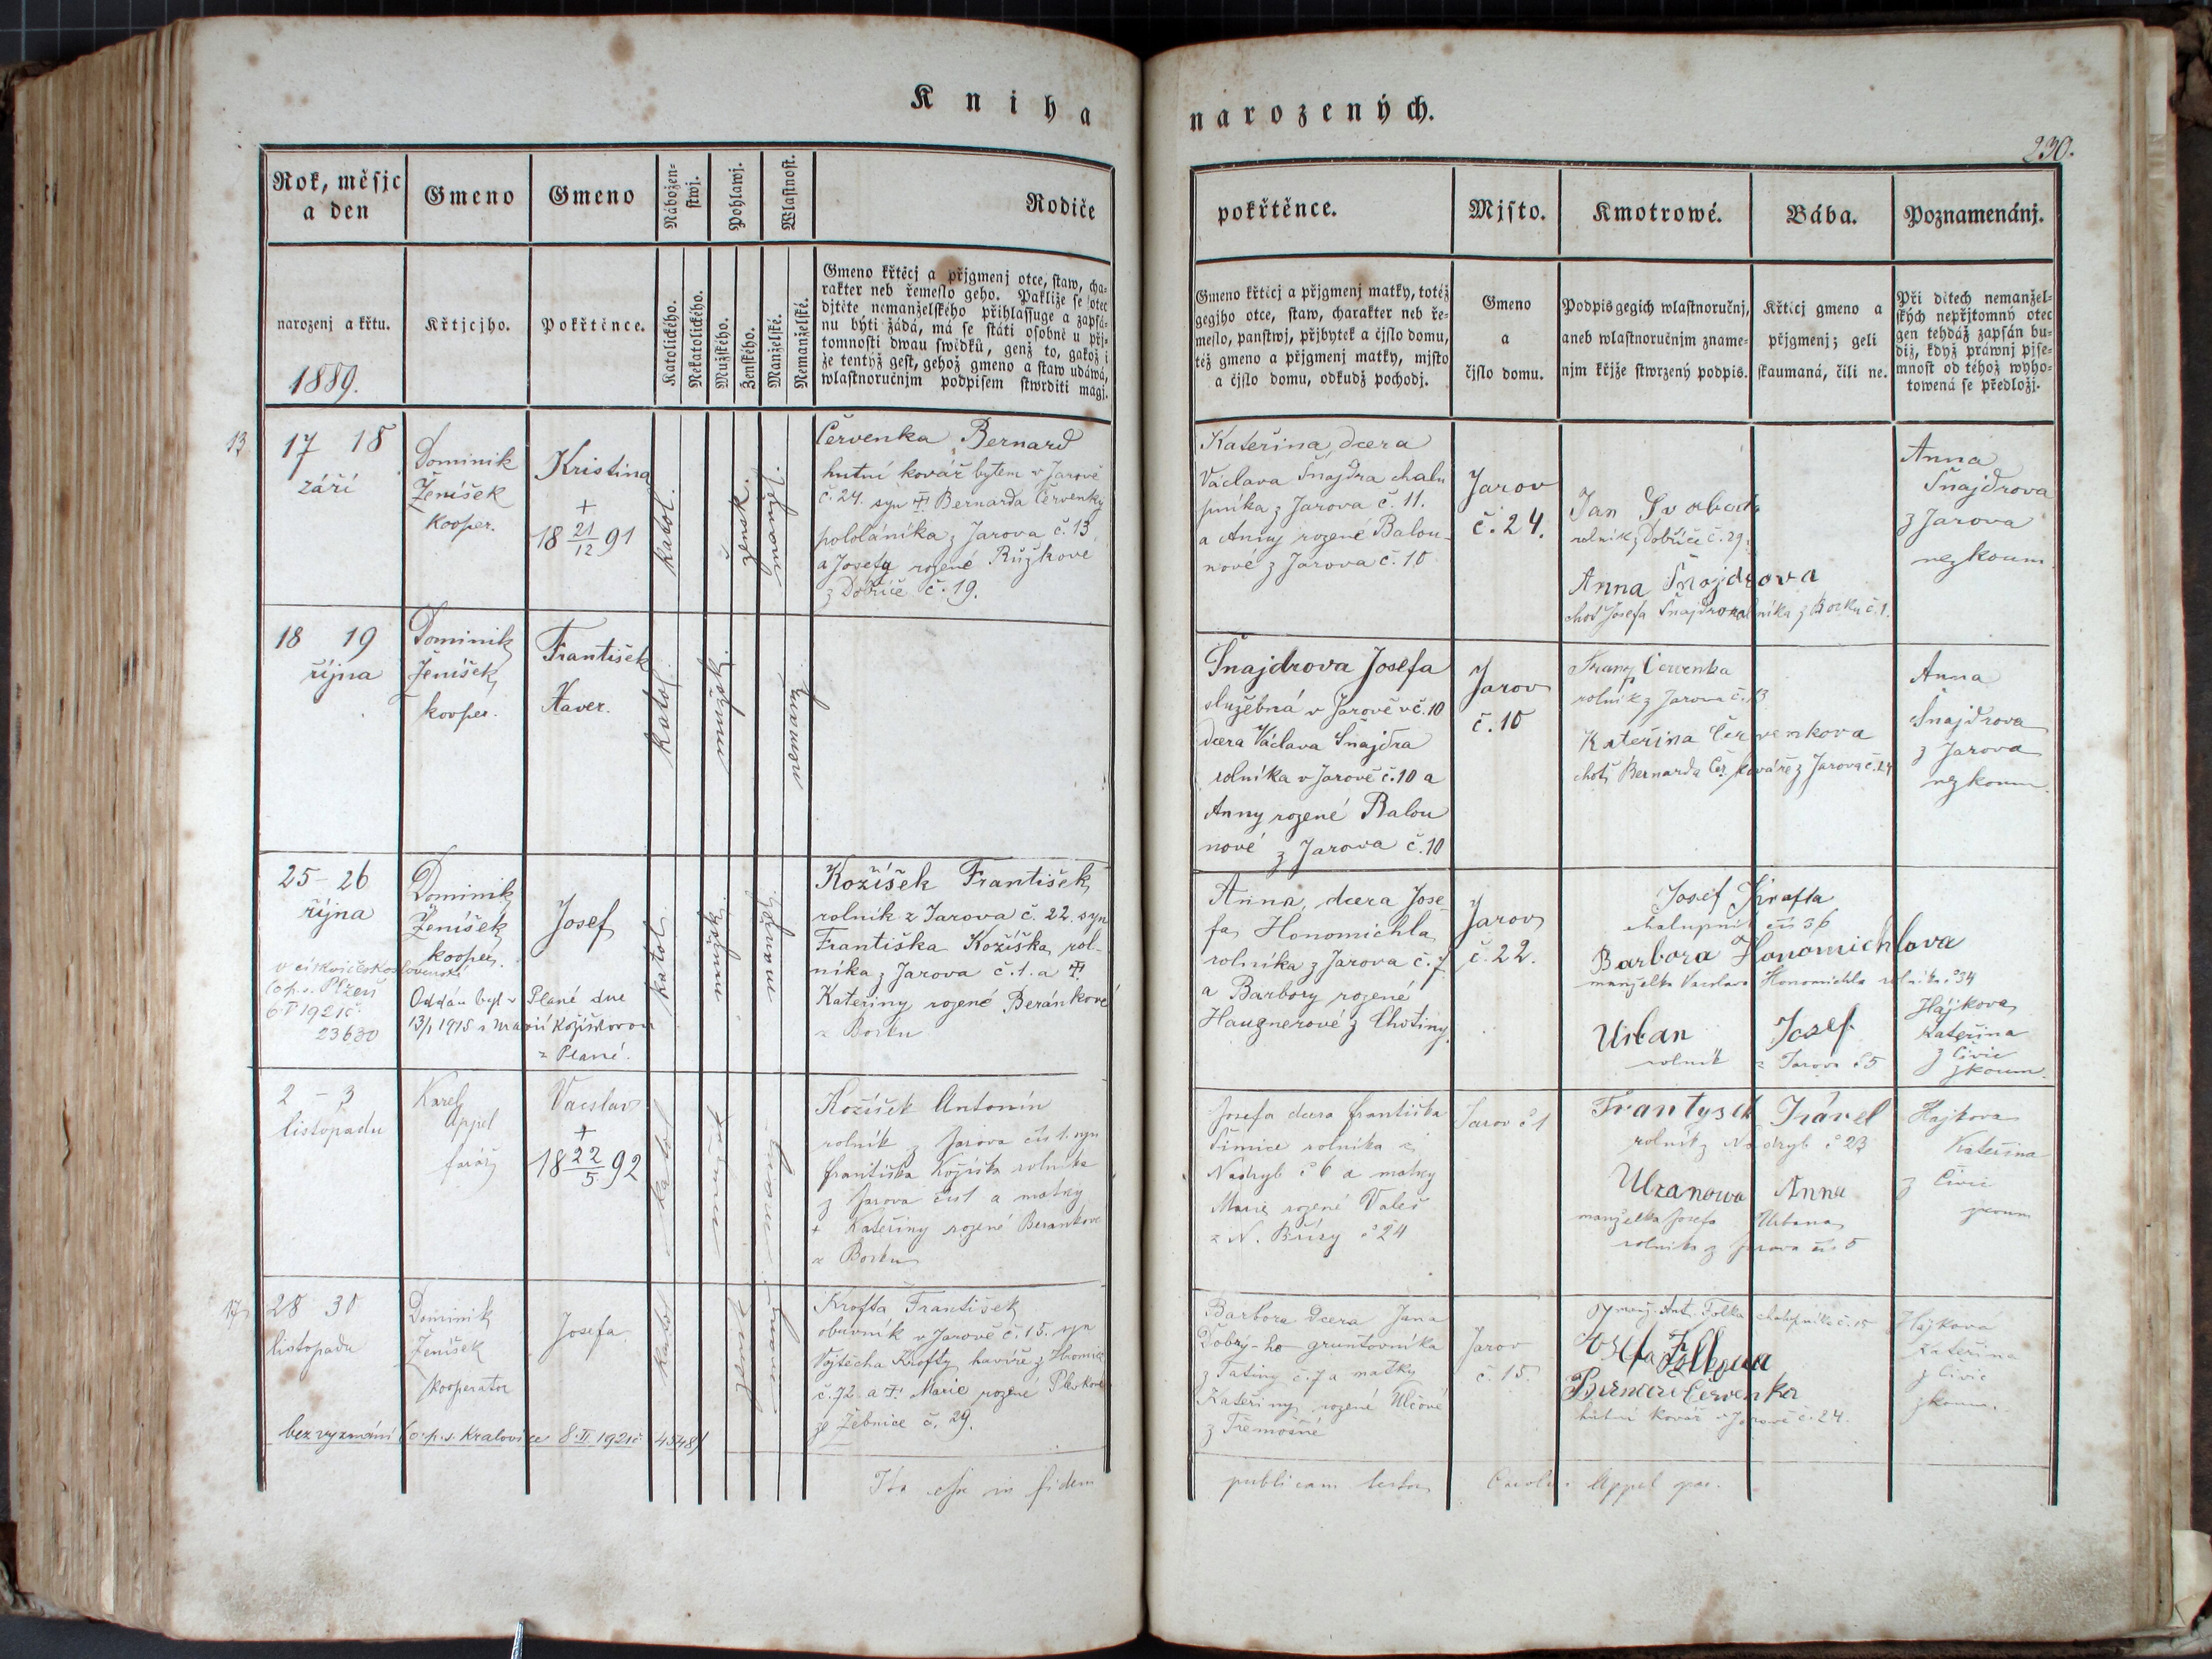 Kniha
narozených.
230.
Rok, měsjc
a den
Gmeno
Gmeno
Nábožen-
stwj.
Pohlawj.
Wlastnost.
Rodiče
pokřtěnce.
Mjsto.
Kmotrowé.
Bába.
Poznamenánj.
narozenj a křtu.
1889.
Křtjcjho.
Pokřtěnce.
Katolického.
Nekatolického.
Mužského.
Ženského.
Manželské.
Nemanželské.
Gmeno křtěcj a přjgmenj otce, staw, cha-
rakter neb řemeslo geho. Pakliže se otec
djtěte nemanželského přihlassuge a zapsá-
nu býti žádá, má se státi osobně u přj-
tomnosti dwau swědků, genž to, gakož i
že tentýž gest, gehož gmeno a staw udáwá,
wlastnoručnjm podpisem stwrditi magj.
Gmeno křtěcj a přjgmenj matky, totéž
gegjho otce, staw, charakter neb ře-
meslo, panstwj, přjbytek a čjslo domu,
též gmeno a přjgmenj matky, mjsto
a čjslo domu, odkudž pocházj.
Gmeno
a
čjslo domu.
Podpis gegich wlastnoručnj,
aneb wlastnoručnjm zname-
njm křjže stwrzený podpis.
Křtěcj gmeno a
přjgmenj; geli
skaumaná, čili ne.
Při dětech nemanžel-
ských nepřjtomný otec
gen tehdáž zapsán bu-
diž, když práwnj pjse-
mnost od téhož wyho-
towená se předložj.
13
17 18
září
Dominik
Ženíšek
kooper.
Kristina
+
18 21/12 91
katol.
žensk.
manžel.
Červenka Bernard
hutní kovář bytem v Jarově
č. 24. syn † Bernarda Červenky
pololáníka z Jarova č. 13
a Josefy rozené Růžkové
z Dobříče č. 19.
Kateřina, dcera
Václava Šnajdra chalu
pníka z Jarova č. 11.
a Anny rozené Balou-
nové z Jarova č. 10
Jarov
č. 24.
Jan Svoboda
rolník z Dobříče č. 29.
Anna Šnajdrova
choť Josefa Šnajdra rolníka z Borku č. 1.
Anna
Šnajdrova
z Jarova
nezkoum.
18 19
října
Dominik
Ženíšek,
kooper.
František
Xaver.
katol.
mužsk.
nemanž.
Šnajdrova Josefa
služebná v Jarově v č. 10
dcera Václava Šnajdra
rolníka v Jarově č. 10 a
Anny rozené Balou
nové z Jarova č. 10
Jarov
č. 10
Franz Červenka
rolník z Jarova č. 13
Kateřina Červenkova
choť Bernarda Čer. kováře z Jarova č. 24
Anna
Šnajdrova
z Jarova
nezkoum.
25 - 26
října
Dominik
Ženíšek
kooper.
Josef
katol.
mužsk.
manžel.
Kožíšek František,
rolník z Jarova č. 22. syn
Františka Kožíška, rol-
níka z Jarova č. 1. a †
Kateřiny rozené Beránkové
z Borku
v církvi československé
(o.p.s. Plzeň
6.V 1921 č.
23630
Oddán byl v Plané dne
13/1 1915 s Marií Kožíškovou
z Plané.
Anna, dcera Jose-
fa Honomichla
rolníka z Jarova č. 7
a Barbory rozené
Haugnerové z Chotiny.
Jarov
č. 22.
Josef Krofta
chalupník čís 36
Barbora Honomichlova
manželka Vaclava Honomichla rolníka č 34
Urban Josef
rolník z Jarova č 5
Hájkova
Kateřina
z Čivic
zkoum.
2 - 3
listopadu
Karel
Appel
farář
Vacslav
+
18 22/5 92
katol
mužské
manžel
Kožíšek Antonín
rolník z Jarova čís 1. syn
Františka Kožíška rolníka
z Jarova čís 1 a matky
+ Kateřiny rozené Berankove
z Borku
Josefa dcera Františka
Šimice rolníka z
Nadryb č 6 a matky
Marie rozené Valeš
z N. Břízy č 24
Jarov č 1
Frantysek Trável
rolník z Nadryb č 23
Urbanowa Anna
manželka Josefa Urbana
rolníka z Jarova čís 5
Hajkova
Kateřina
z Čivic
zkoum
17
28 30
listopadu
Dominik
Ženíšek
kooperator
Josefa.
katol
žensk
manžel
Krofta František
obuvník v Jarově č. 15. syn
Vojtěcha Krofty havíře z Hromice
č. 72. a † Marie rozené
ze Žebnice č. 29.
bez vyznání (o.p.s. Kralovice 8.II.1921 č. 4548)
Barbora dcera Jana
Dobrý-ho gruntovníka
z Tatiny č. 7 a matky
Kateřiny rozené Ulčové
z Třemošné
Jarov
č. 15.
manž. Ant. Folka chalupníka č. 15
Josefa Folkova
Bernard Červenka
hutní kovář v Jarově č. 24.
Hájkova
Kateřina
z Čivic
zkoum.
Ita esse in fidem
publicam testor Carolus Appel par.